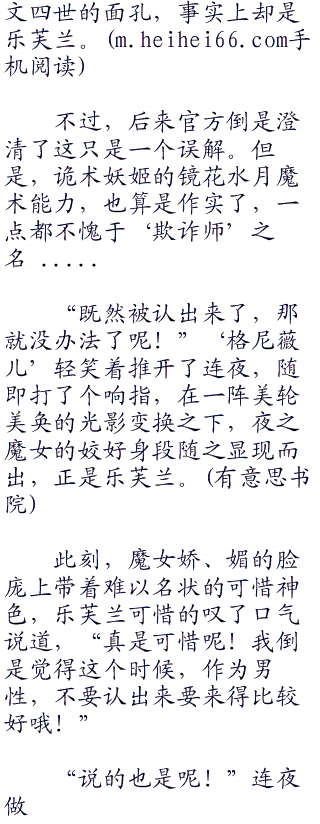 文四世的面孔，事实上却是
乐芙兰。(m.heihei66.com手
机阅读)
不过，后来官方倒是澄
清了这只是一个误解。但
是，诡术妖姬的镜花水月魔
术能力，也算是作实了，一
点都不愧于‘欺诈师’之
名 .....
“既然被认出来了，那
就没办法了呢！”‘格尼薇
儿’轻笑着推开了连夜，随
即打了个响指，在一阵美轮
美奂的光影变换之下，夜之
魔女的姣好身段随之显现而
出，正是乐芙兰。(有意思书
院)
此刻，魔女娇、媚的脸
庞上带着难以名状的可惜神
色，乐芙兰可惜的叹了口气
说道，“真是可惜呢！我倒
是觉得这个时候，作为男
性，不要认出来要来得比较
好哦！”
“说的也是呢！”连夜
做